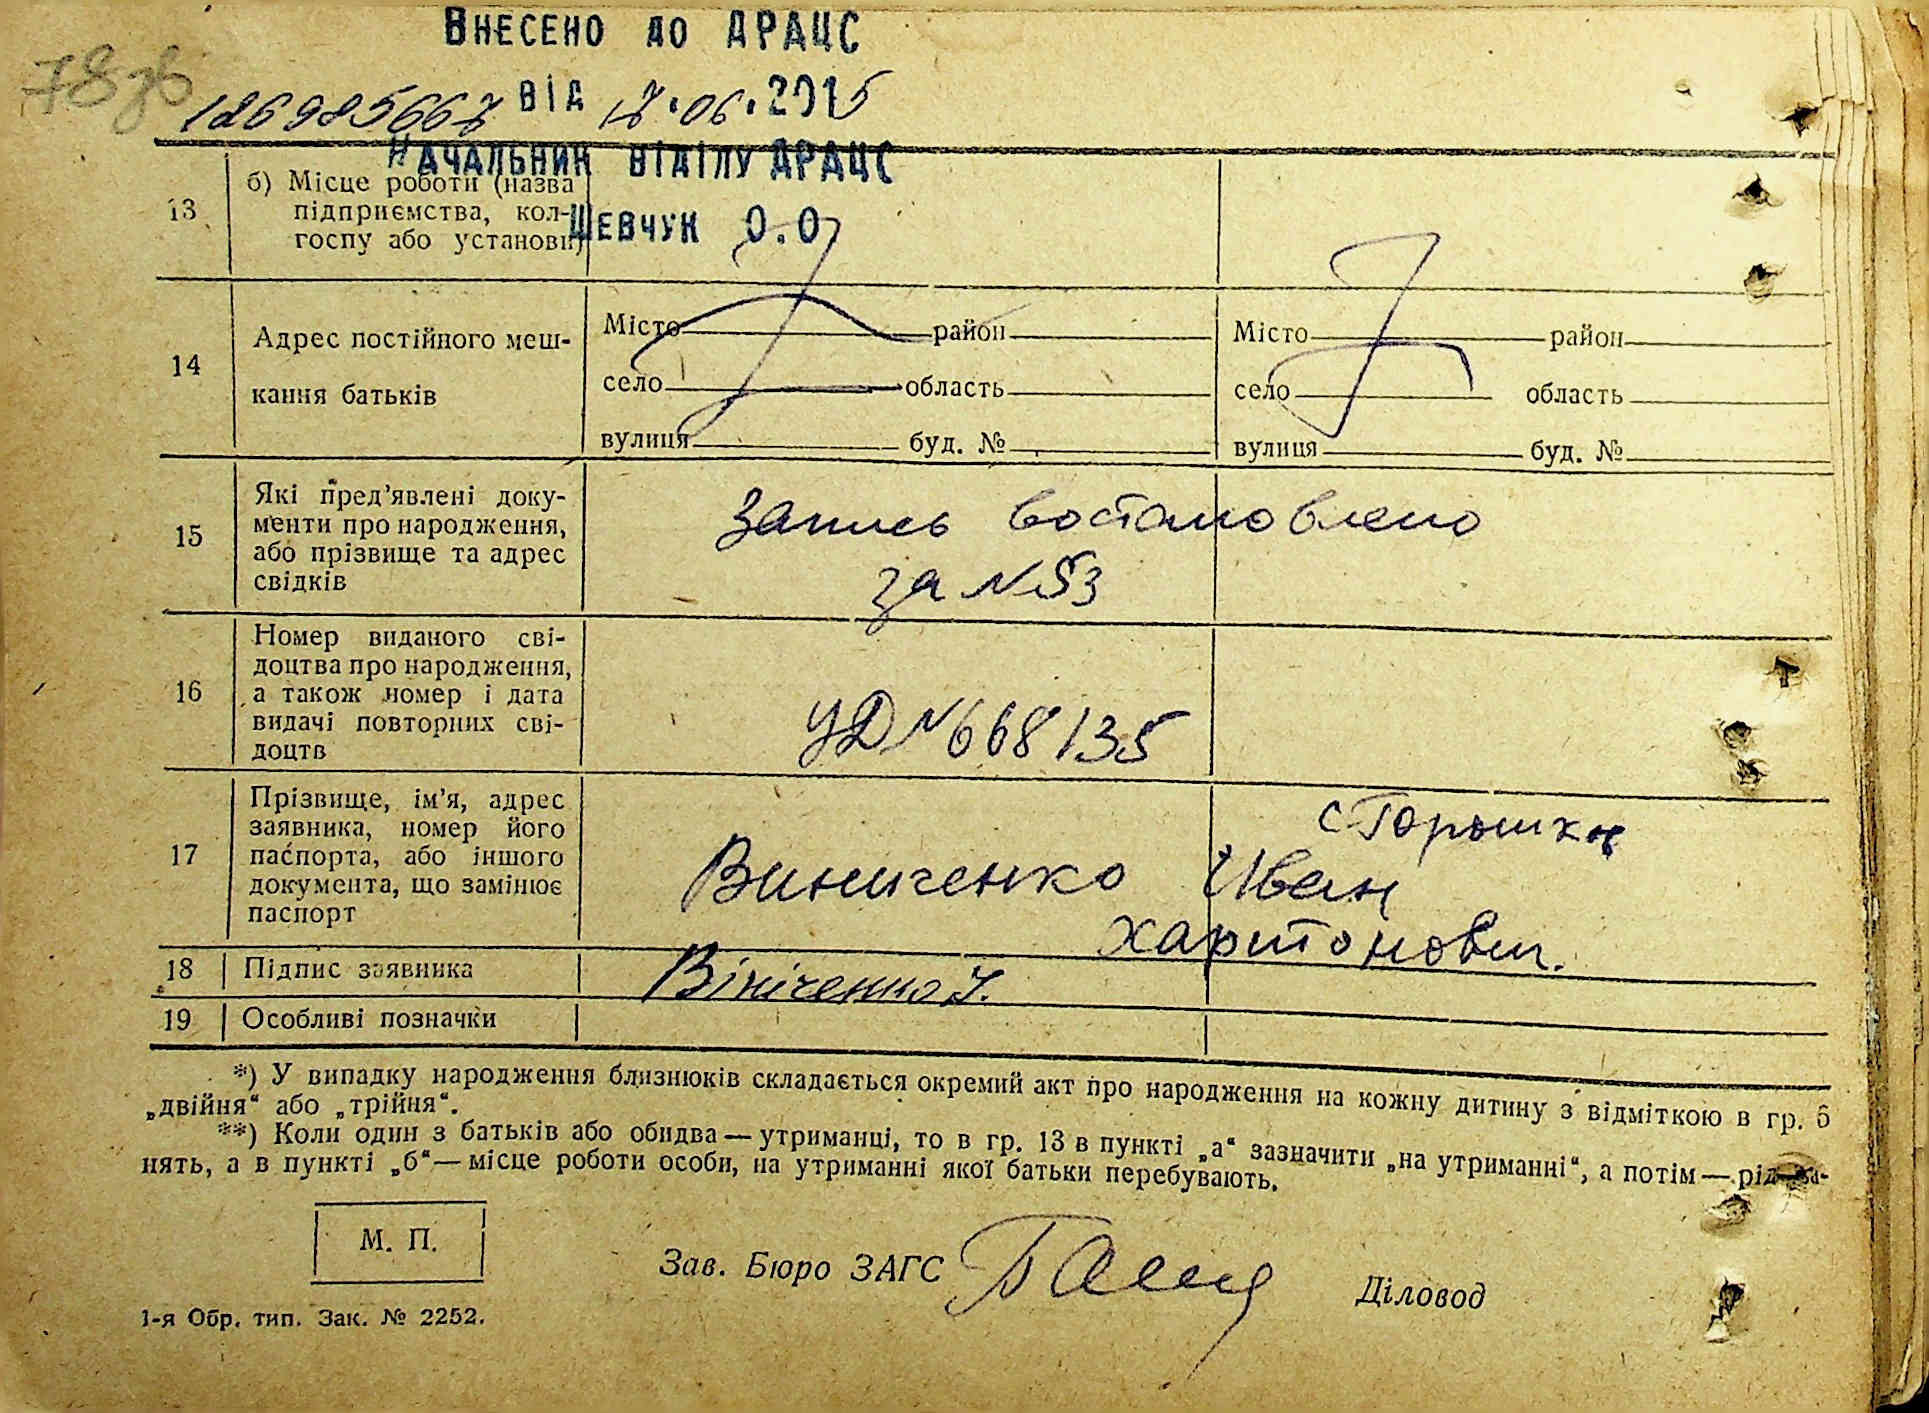 Внесено до ДРАЦС
78зв
126985667 від 17.06.2015
Начальник відділу ДРАЦС
Шевчук О.О
13
б) Місце роботи (назва
підприємства, кол-
госпу або установи)
14
Адрес постійного меш-
кання батьків
Місто район
село область
вулиця буд. №
Місто район
село область
вулиця буд. №
15
Які пред’явлені доку-
менти про народження,
або прізвище та адрес
свідків
Запись востановлено
за №53
16
Номер виданого сві-
доцтва про народження,
а також номер і дата
видачі повторних сві-
доцтв
УД №668135
17
Прізвище, ім’я, адрес
заявника, номер його
паспорта, або іншого
документа, що замінює
паспорт
с Горошки
Виниченко Иван
Харитонович.
18 Підпис заявника
Вініченко І.
19 Особливі позначки
*) У випадку народження близнюків складається окремий акт про народження на кожну дитину з відміткою в гр. 6
„двійня“ або „трійня“.
**) Коли один з батьків або обидва — утриманці, то в гр. 13 в пункті „а“ зазначити „на утриманні“, а потім — рід за-
нять, а в пункті „б“ — місце роботи особи, на утриманні якої батьки перебувають.
М. П.
Зав. Бюро ЗАГС
Діловод
1-я Обр. тип. Зак. № 2252.